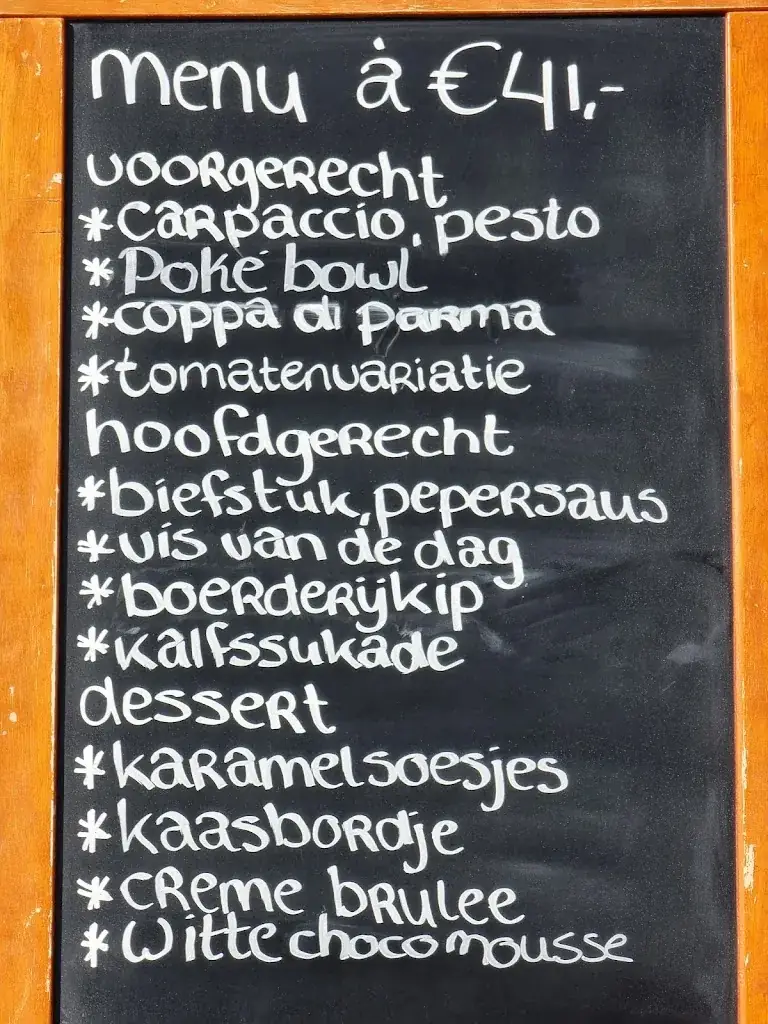 menu à €41,-
voorgerecht
*carpaccio, pesto
*Poké bowl
*coppa di parma
*tomatenvariatie
hoofdgerecht
*biefstuk, pepersaus
*vis van de dag
*boerderijkip
*kalfssukade
dessert
*karamelsoesjes
*kaasbordje
*creme brulee
*witte choco mousse